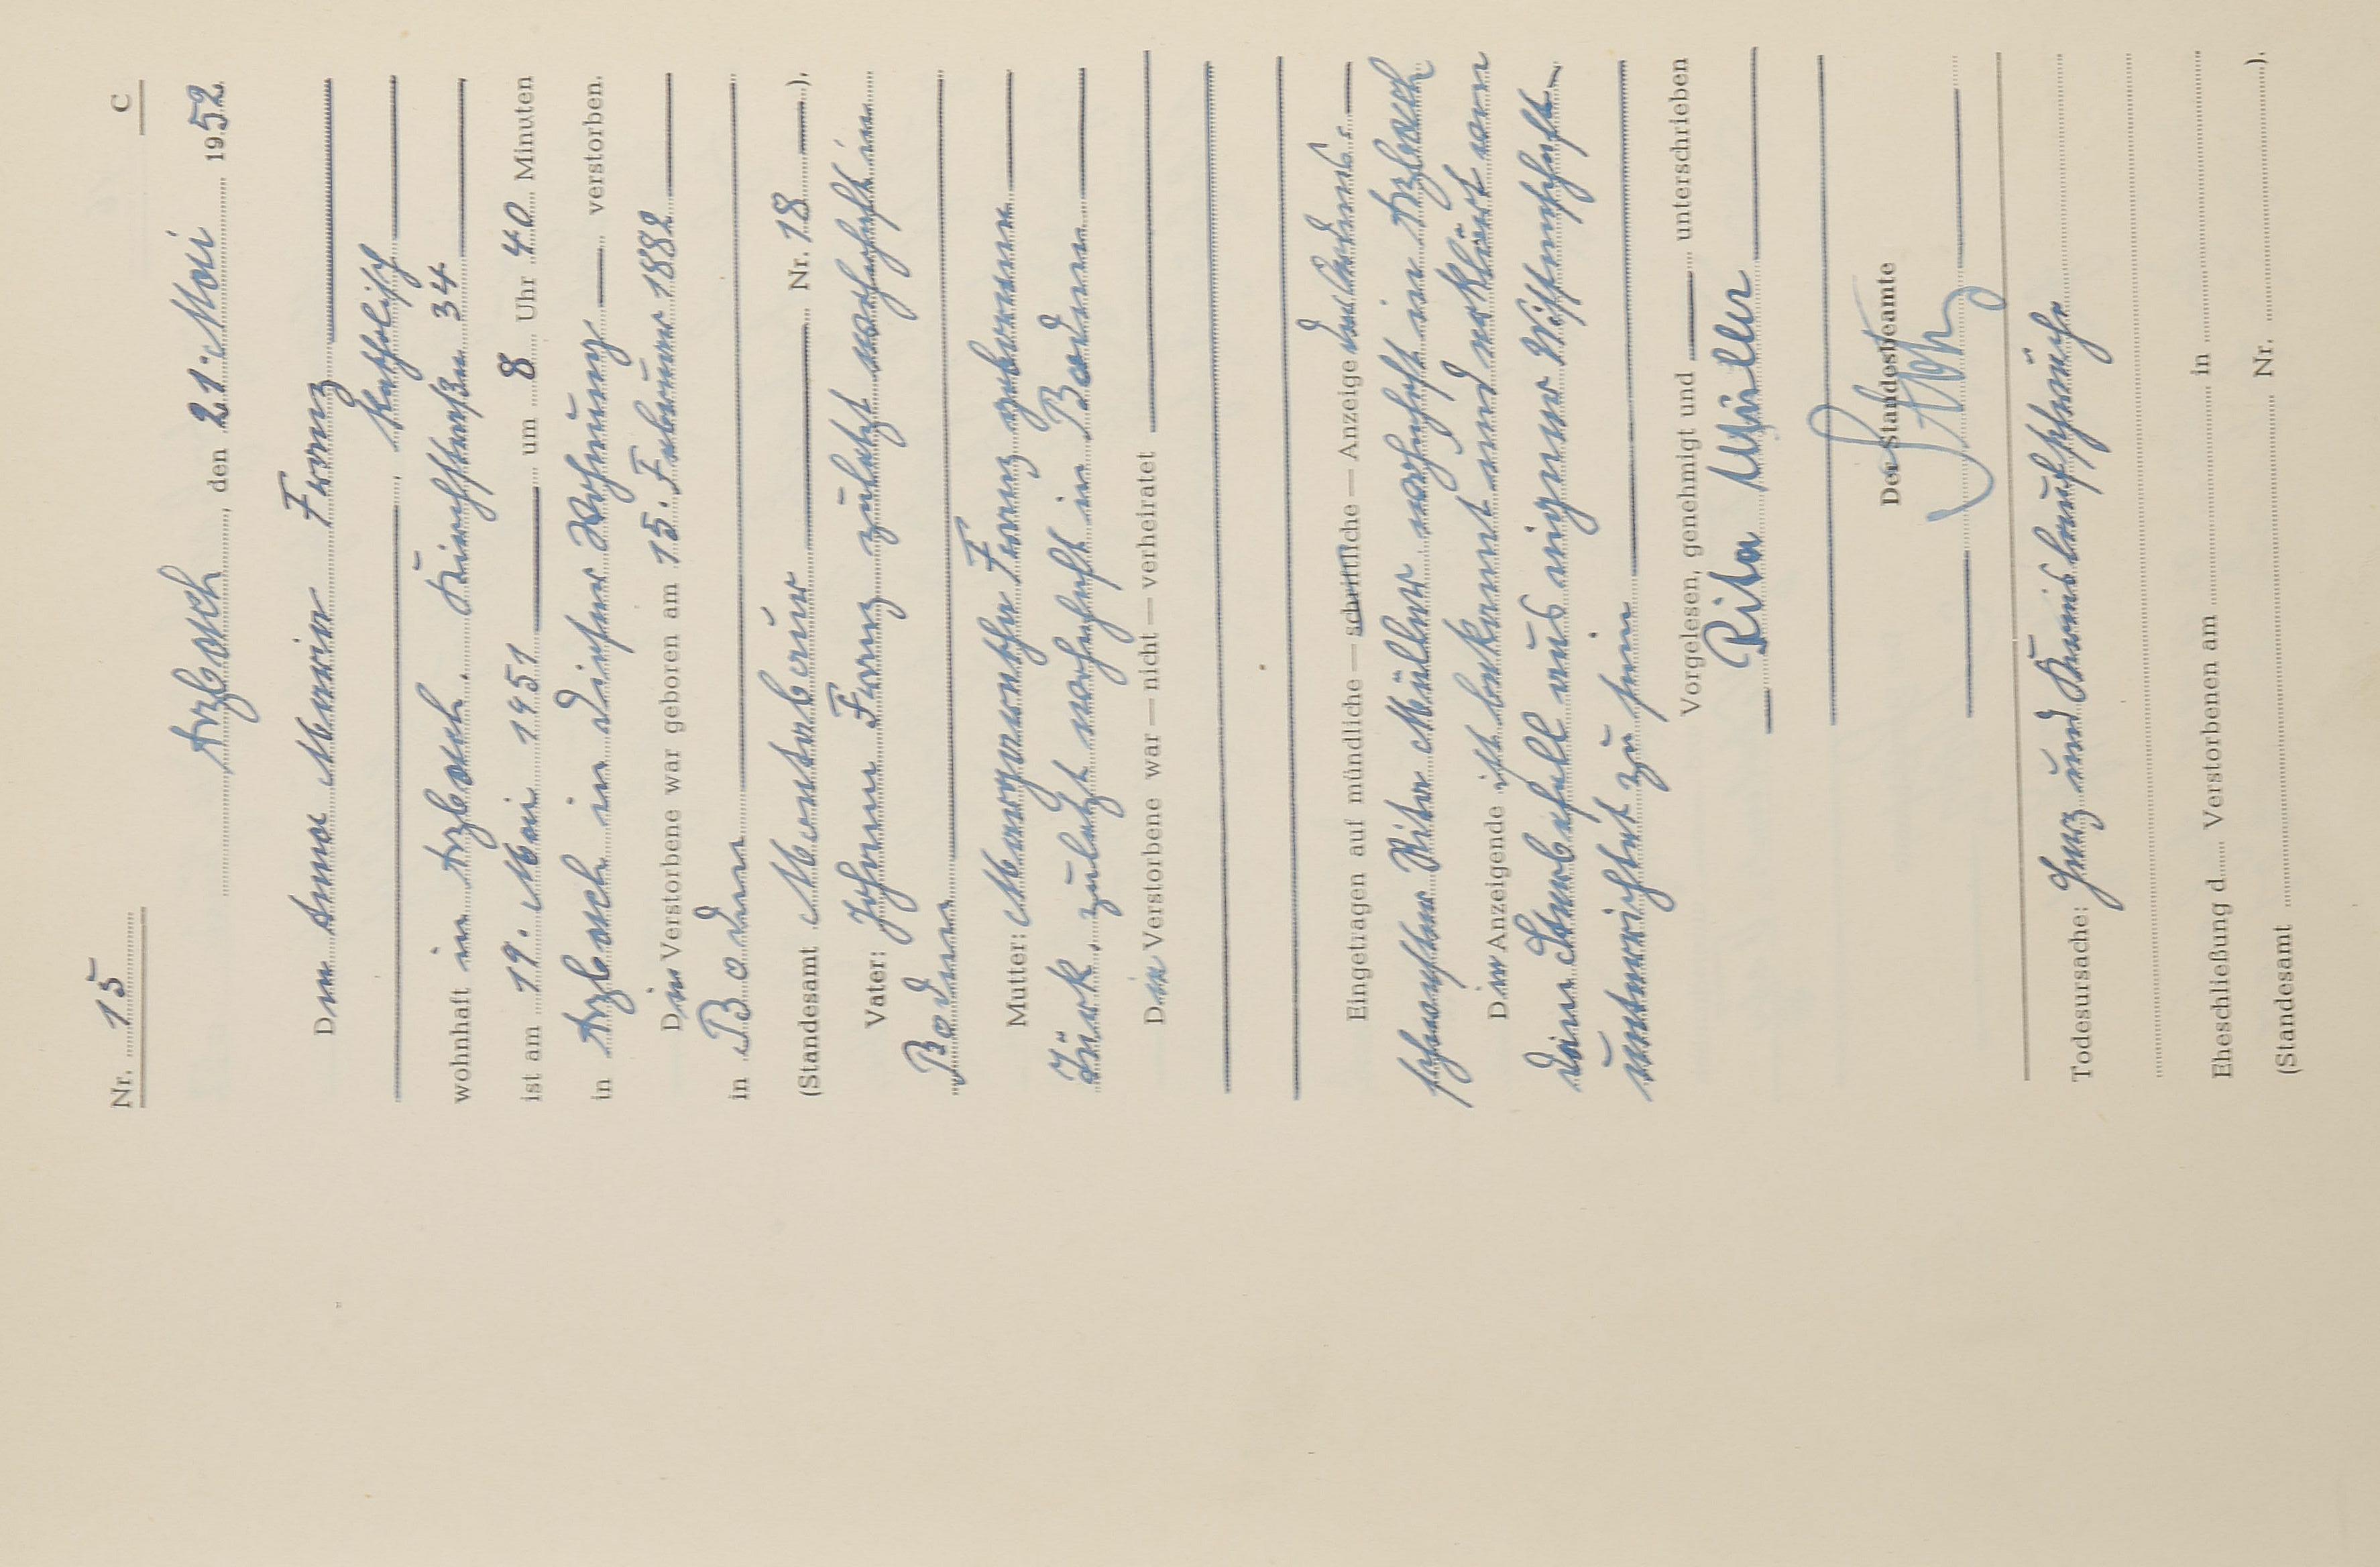 Nr. 15 C
Arzbach, den 21. Mai 1952
Die Anna Maria Franz
katholisch
wohnhaft in Arzbach, Kirchstraße 34
ist am 19. Mai 1951 um 8 Uhr 40 Minuten
in Arzbach in dieser Wohnung verstorben.
Die Verstorbene war geboren am 15. Februar 1882
in Baden
(Standesamt Montabaur Nr. 18).
Vater: Johann Franz zuletzt wohnhaft in
Baden
Mutter: Margarethe Franz geborene
zuletzt wohnhaft in Baden
Die Verstorbene war — nicht — verheiratet
Eingetragen auf mündliche — schriftliche — Anzeige der
Rita Müller wohnhaft in Arzbach
Die Anzeigende ist bekannt und erklärt von
dem Sterbefall aus eigener Wissenschaft
unterrichtet zu sein
Vorgelesen, genehmigt und unterschrieben
Rita Müller
Der Standesbeamte
Todesursache: Herz und Kreislaufschwäche
Eheschließung d Verstorbenen am in
(Standesamt Nr. ).